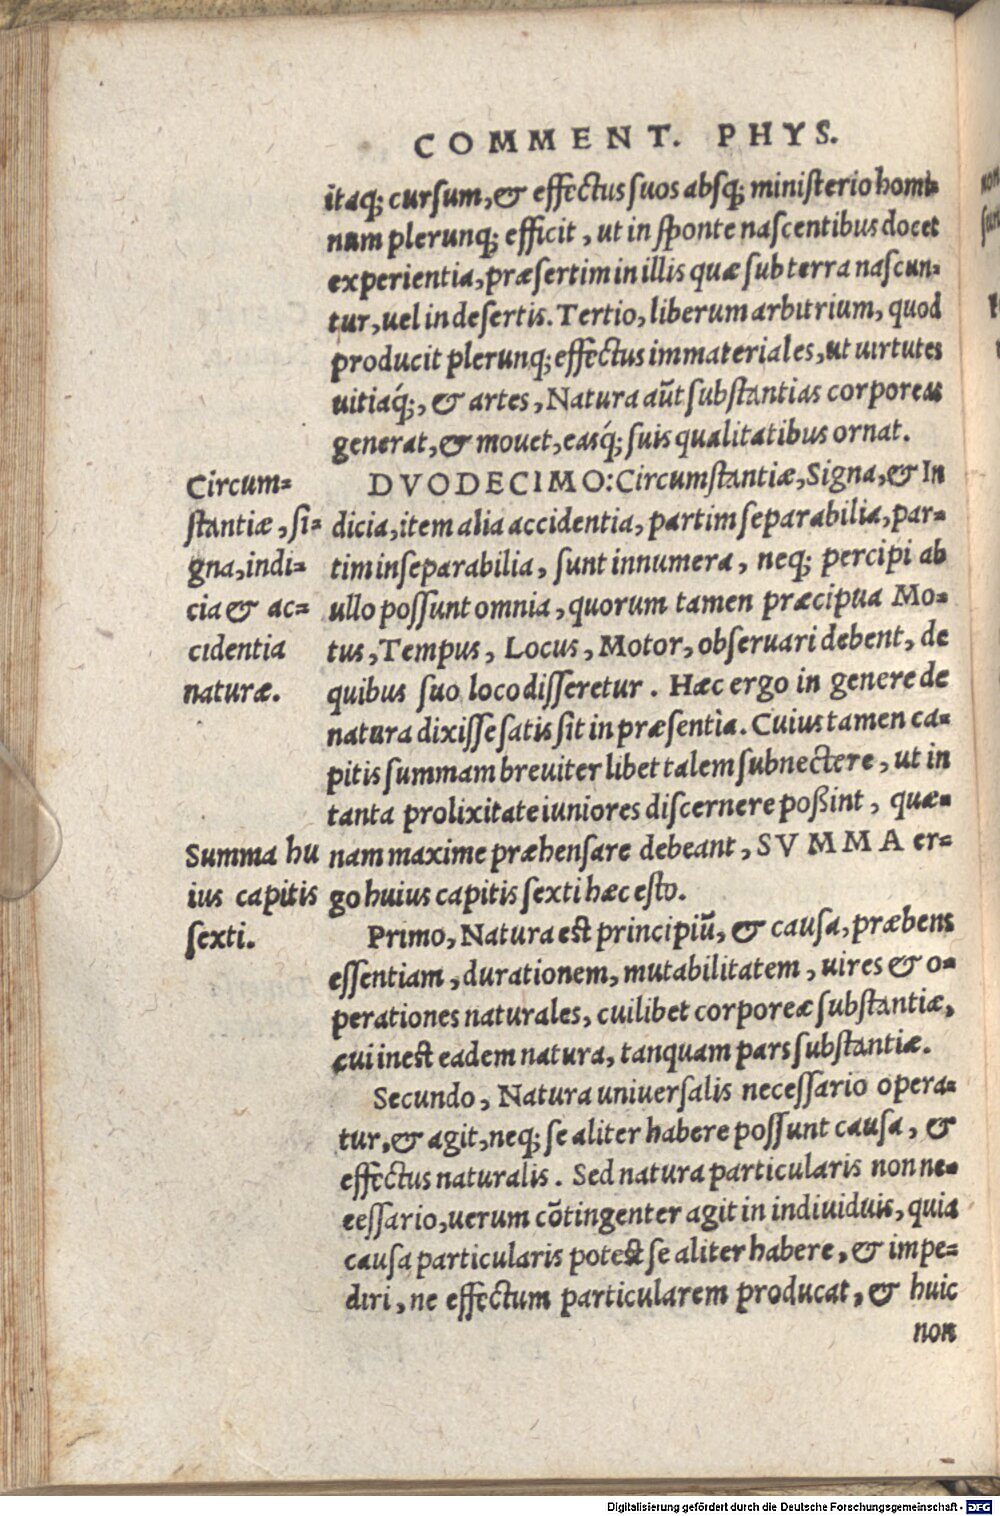 COMMENT. PHYS.
itaq; cursum, & effectus suos absq; ministerio homi-
num plerunq; efficit, ut in sponte nascentibus docet
experientia, præsertim in illis quæ sub terra nascun-
tur, uel in desertis. Tertio, liberum arbitrium, quod
producit plerunq; effectus immateriales, ut uirtutes
uitiaq́;, & artes, Natura aũt substantias corporeas
generat, & mouet, easq́; suis qualitatibus ornat.
DVODECIMO: Circumstantiæ, Signa, & In
dicia, item alia accidentia, partim separabilia, par-
tim inseparabilia, sunt innumera, neq; percipi ab
ullo possunt omnia, quorum tamen præcipua Mo-
tus, Tempus, Locus, Motor, obseruari debent, de
quibus suo loco disseretur. Hæc ergo in genere de
natura dixisse satis sit in præsentia. Cuius tamen ca-
pitis summam breuiter libet talem subnectere, ut in
tanta prolixitate iuniores discernere poßint, quæ-
nam maxime præhensare debeant, SVMMA er-
go huius capitis sexti hæc esto.
Circum-
stantiæ, si-
gna, indi-
cia & ac-
cidentia
naturæ.
Summa hu
ius capitis
sexti.
Primo, Natura est principiũ, & causa, præbens
essentiam, durationem, mutabilitatem, uires & o-
perationes naturales, cuilibet corporeæ substantiæ,
cui inest eadem natura, tanquam pars substantiæ.
Secundo, Natura uniuersalis necessario opera-
tur, & agit, neq; se aliter habere possunt causa, &
effectus naturalis. Sed natura particularis non ne-
cessario, uerum cõtingenter agit in indiuiduis, quia
causa particularis potest se aliter habere, & impe-
diri, ne effectum particularem producat, & huic
non
Digitalisierung gefördert durch die Deutsche Forschungsgemeinschaft - DFG